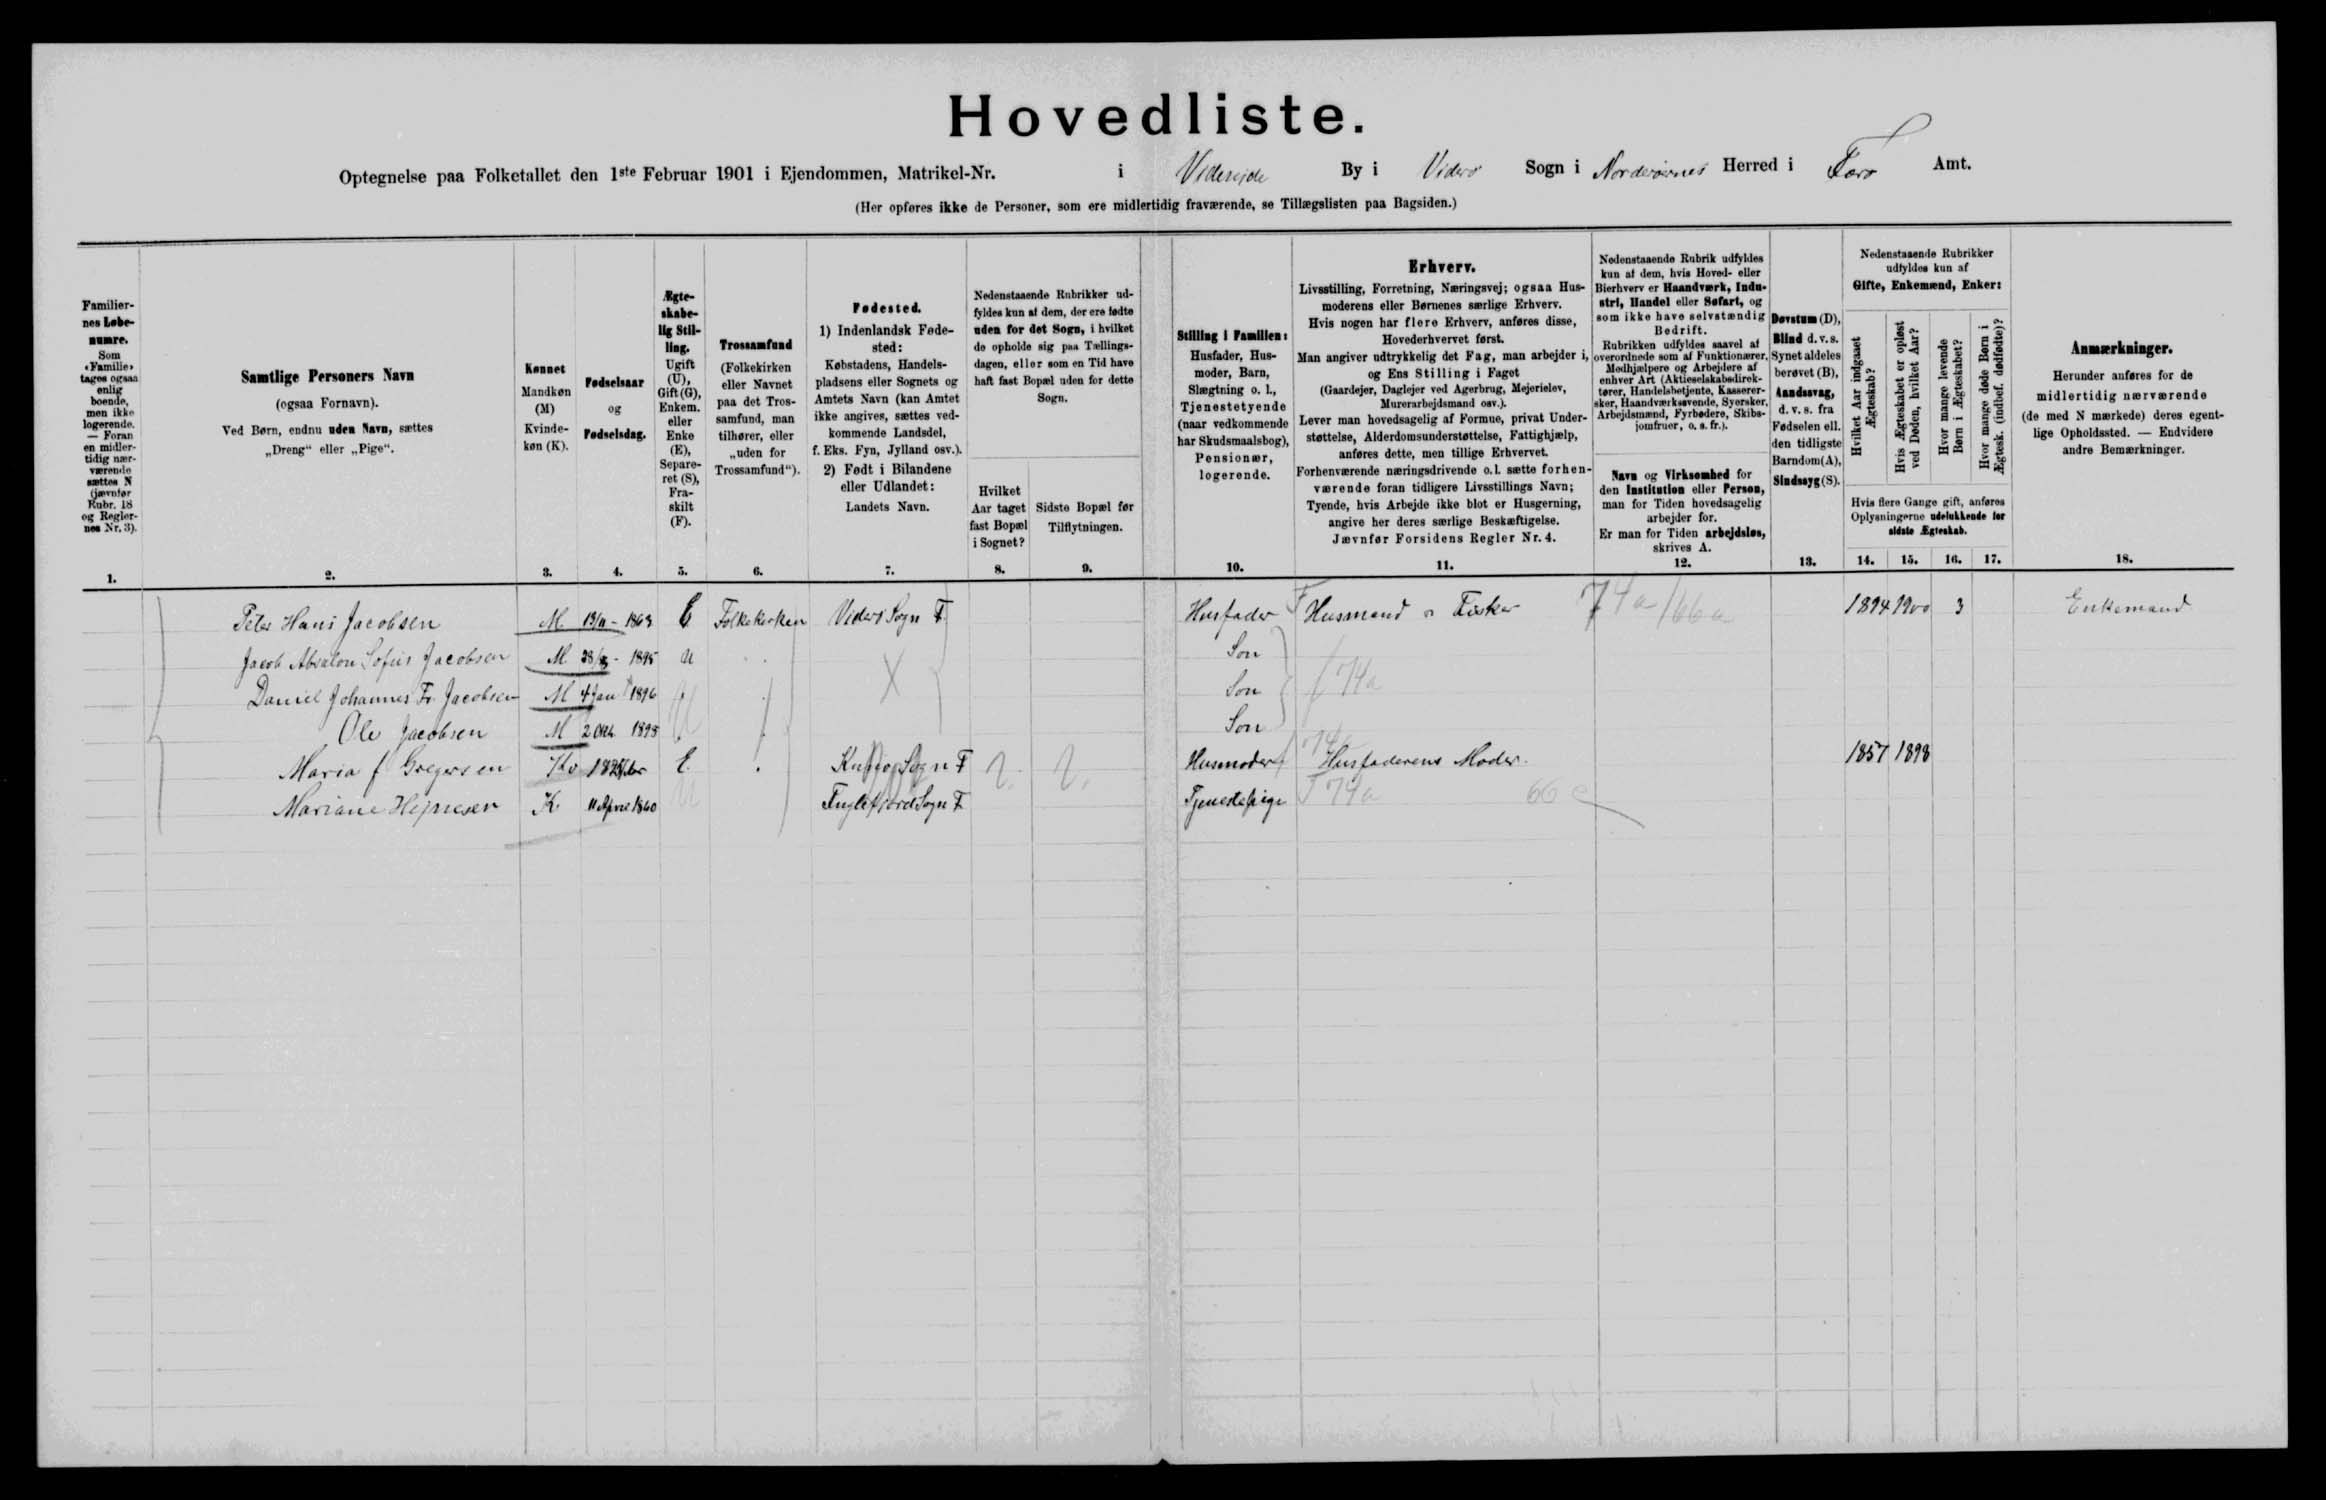 Hovedliste.
Optegnelse paa Folketallet den 1ste Februar 1901 i Ejendommen, Matrikel-Nr. i Videreide By i Viderø Sogn i Norderøernes Herred i Færø Amt.
(Her opføres ikke de Personer, som ere midlertidig fraværende, se Tillægslisten paa Bagsiden.)
Familier-
nes Løbe-
numre.
Som
«Familie»
tages ogsaa
enlig
boende,
men ikke
logerende.
— Foran
en midler-
tidig nær-
værende
sættes N
(jævnfør
Rubr. 18
og Regler-
nes Nr. 3).
1.
Samtlige Personers Navn
(ogsaa Fornavn).
Ved Børn, endnu uden Navn, sættes
„Dreng“ eller „Pige“.
2.
Kønnet
Mandkøn
(M)
Kvinde-
køn (K).
3.
Fødselsaar
og
Fødselsdag.
4.
Ægte-
skabe-
lig Stil-
ling.
Ugift
(U),
Gift (G),
Enkem.
eller
Enke
(E),
Separe-
ret (S),
Fra-
skilt
(F).
5.
Trossamfund
(Folkekirken
eller Navnet
paa det Tros-
samfund, man
tilhører, eller
„uden for
Trossamfund“).
6.
Fødested.
1) Indenlandsk Føde-
sted:
Købstadens, Handels-
pladsens eller Sognets og
Amtets Navn (kan Amtet
ikke angives, sættes ved-
kommende Landsdel,
f. Eks. Fyn, Jylland osv.).
2) Født i Bilandene
eller Udlandet:
Landets Navn.
7.
Nedenstaaende Rubrikker ud-
fyldes kun af dem, der ere fødte
uden for det Sogn, i hvilket
de opholde sig paa Tællings-
dagen, eller som en Tid have
haft fast Bopæl uden for dette
Sogn.
Hvilket
Aar taget
fast Bopæl
i Sognet?
8.
Sidste Bopæl før
Tilflytningen.
9.
Stilling i Familien:
Husfader, Hus-
moder, Barn,
Slægtning o. l.,
Tjenestetyende
(naar vedkommende
har Skudsmaalsbog),
Pensionær,
logerende.
10.
Erhverv.
Livsstilling, Forretning, Næringsvej; ogsaa Hus-
moderens eller Børnenes særlige Erhverv.
Hvis nogen har flere Erhverv, anføres disse,
Hovederhvervet først.
Man angiver udtrykkelig det Fag, man arbejder i,
og Ens Stilling i Faget
(Gaardejer, Daglejer ved Agerbrug, Mejerielev,
Murerarbejdsmand osv.).
Lever man hovedsagelig af Formue, privat Under-
støttelse, Alderdomsunderstøttelse, Fattighjælp,
anføres dette, men tillige Erhvervet.
Forhenværende næringsdrivende o. l. sætte forhen-
værende foran tidligere Livsstillings Navn;
Tyende, hvis Arbejde ikke blot er Husgerning,
angive her deres særlige Beskæftigelse.
Jævnfør Forsidens Regler Nr. 4.
11.
Nedenstaaende Rubrik udfyldes
kun af dem, hvis Hoved- eller
Bierhverv er Haandværk, Indu-
stri, Handel eller Søfart, og
som ikke have selvstændig
Bedrift.
Rubrikken udfyldes saavel af
overordnede som af Funktionærer,
Medhjælpere og Arbejdere af
enhver Art (Aktieselskabsdirek-
tører, Handelsbetjente, Kasserer-
sker, Haandværkssvende, Syersker,
Arbejdsmænd, Fyrbødere, Skibs-
jomfruer, o. s. fr.).
Navn og Virksomhed for
den Institution eller Person,
man for Tiden hovedsagelig
arbejder for.
Er man for Tiden arbejdsløs,
skrives A.
12.
Døvstum (D),
Blind d. v. s.
Synet aldeles
berøvet (B),
Aandssvag,
d. v. s. fra
Fødselen ell.
den tidligste
Barndom (A),
Sindssyg (S).
13.
Nedenstaaende Rubrikker
udfyldes kun af
Gifte, Enkemænd, Enker:
Hvilket Aar indgaaet
Ægteskab?
Hvis Ægteskabet er opløst
ved Døden, hvilket Aar?
Hvor mange levende
Børn i Ægteskabet?
Hvor mange døde Børn i
Ægtesk. (indbef. dødfødte)?
Hvis flere Gange gift, anføres
Oplysningerne udelukkende for
sidste Ægteskab.
14. 15. 16. 17.
Anmærkninger.
Herunder anføres for de
midlertidig nærværende
(de med N mærkede) deres egent-
lige Opholdssted. — Endvidere
andre Bemærkninger.
18.
Peter Hans Jacobsen M 1863 E Folkekirken Viderø Sogn F. Husfader F Husmand & Fisker 74a/66a 1894 1900 3 Enkemand
Jacob Absalon Sofus Jacobsen M 1895 U Søn
Daniel Johannes Fr. Jacobsen M 4 Jan 1896 X Søn 74a
Ole Jacobsen M 2 1898 U Søn
Maria f Gregersen E. Kunø Sogn F ? ? Husmoder 74a Husfaderens Moder. 1857 1898
Mariane Hejnesen K. 11 April 1860 U Fuglefjord Sogn F Tjenestepige F 74a 66 c